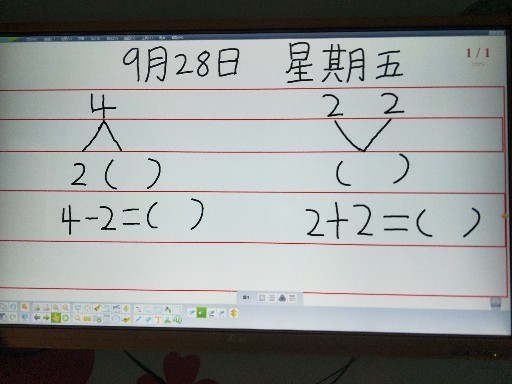 9月28日 星期五
1/1
4 2 2
2 ( ) ( )
4-2=( ) 2+2=( )